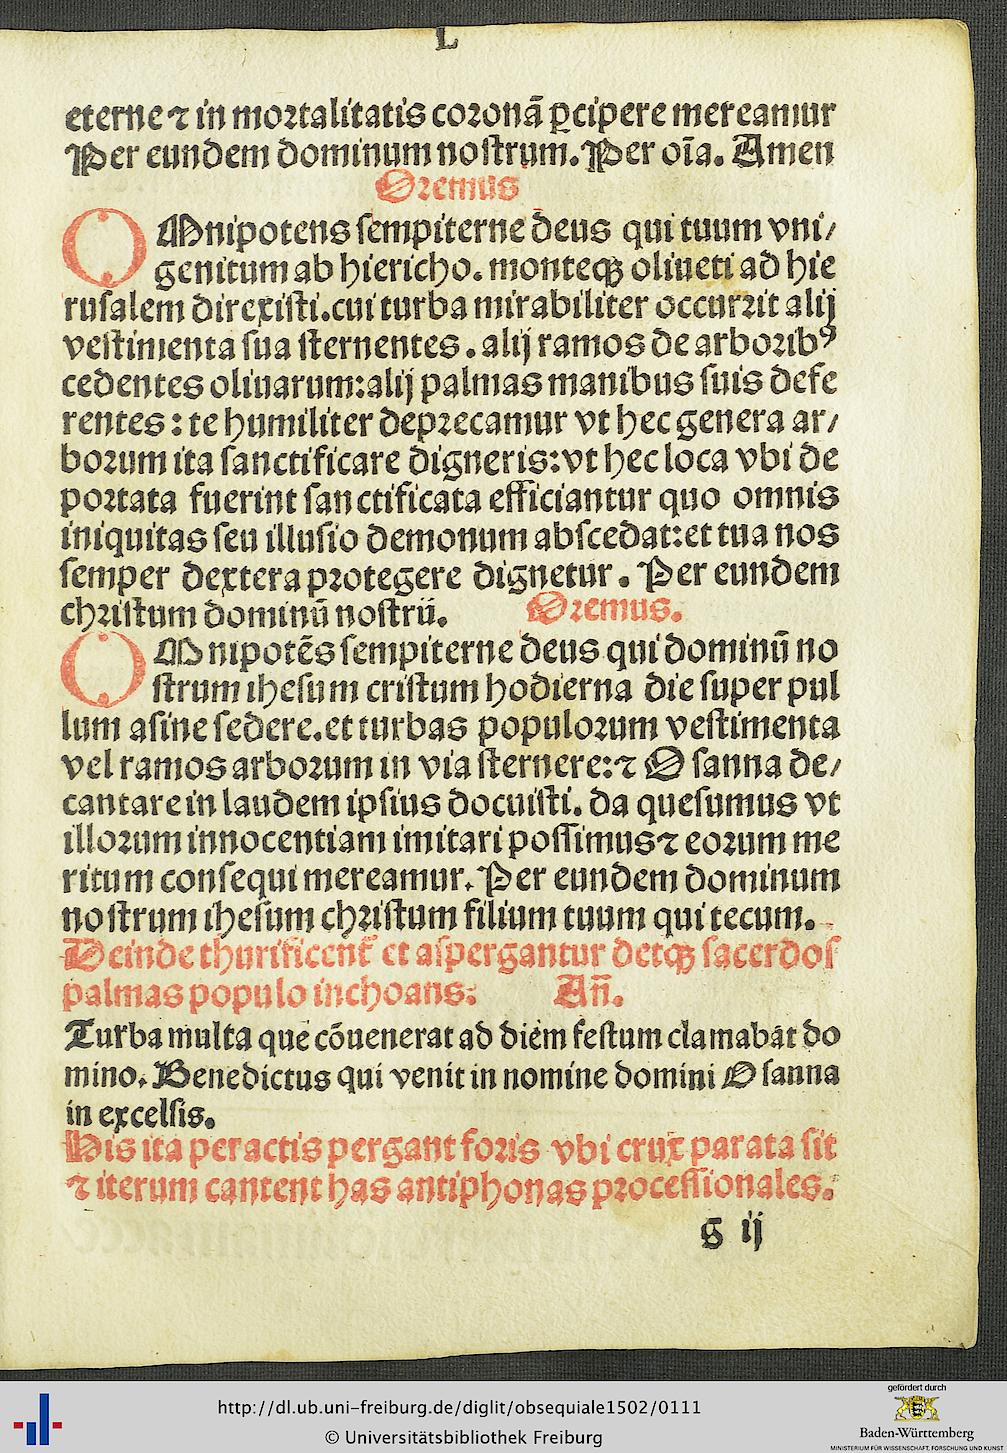 L
eterne ⁊ in moꝛtalitatis coꝛonā ꝑcipere mereamur
Per eundem dominum noſtrum. Per oīa. Amen
Oꝛemus
OMnipotens ſempiterne deus qui tuum vni/
genitum ab hiericho. monteqꝫ oliueti ad hie
ruſalem direxiſti. cui turba mirabiliter occurꝛit alij
veſtimenta ſua ſternentes. alij ramos de arboꝛibꝰ
cedentes oliuarum: alij palmas manibus ſuis defe
rentes: te humiliter depꝛecamur vt hec genera ar/
boꝛum ita ſanctificare digneris: vt hec loca vbi de
poꝛtata fuerint ſanctificata efficiantur quo omnis
iniquitas ſeu illuſio demonum abſcedat: et tua nos
ſemper dextera pꝛotegere dignetur. Per eundem
chꝛiſtum dominū noſtrū. Oꝛemus.
OMnipotēs ſempiterne deus qui dominū no
ſtrum iheſum criſtum hodierna die ſuper pul
lum aſine ſedere. et turbas populoꝛum veſtimenta
vel ramos arboꝛum in via ſternere: ⁊ Oſanna de/
cantare in laudem ipſius docuiſti. da queſumus vt
illoꝛum innocentiam imitari poſſimus ⁊ eoꝛum me
ritum conſequi mereamur. Per eundem dominum
noſtrum iheſum chꝛiſtum filium tuum qui tecum.
Deinde thurificent᷑ et aſpergantur detqꝫ ſacerdoſ
palmas populo inchoans: Añ.
Turba multa que cōuenerat ad diem feſtum clamabat do
mino. Benedictus qui venit in nomine domini Oſanna
in excelſis.
His ita peractis pergant foꝛis vbi crux parata ſit
⁊ iterum cantent has antiphonas pꝛoceſſionales.
G ij
http://dl.ub.uni-freiburg.de/diglit/obsequiale1502/0111
© Universitätsbibliothek Freiburg
gefördert durch
Baden-Württemberg
MINISTERIUM FÜR WISSENSCHAFT, FORSCHUNG UND KUNST